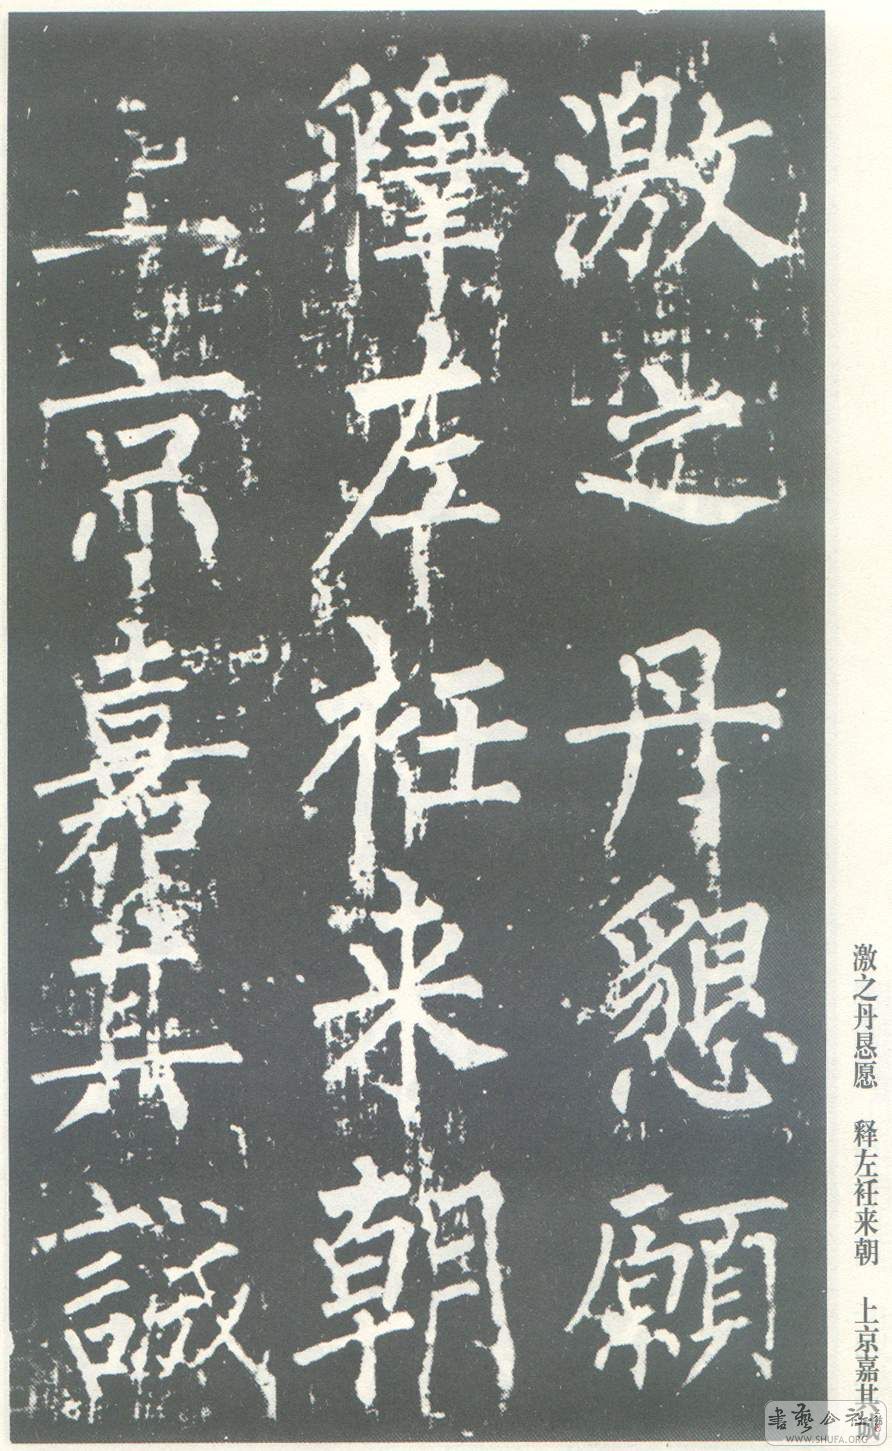 激之丹懇願
釋左衽来朝
上京嘉其誠
激之丹恳愿 释左衽来朝 上京嘉其诚
書藝公社
WWW.SHUFA.ORG